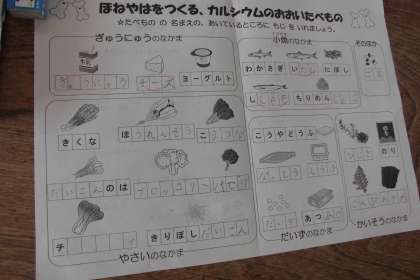 ほねやはをつくる、カルシウムのおおいたべもの
☆たべもの の 名まえの、あいているところに もじ を いれましょう。
ぎゅうにゅうのなかま
ぎゅうにゅう
チーズ
ヨーグルト
小魚のなかま
わかさぎ
いわし
にぼし
ししゃも
ちりめん
そのほか
きくな
ほうれんそう
こまつな
だいこんのは
ブロッコリー
チ
きりぼしだいこん
やさいのなかま
こうやどうふ
あつ
だいずのなかま
のり
かいそうのなかま